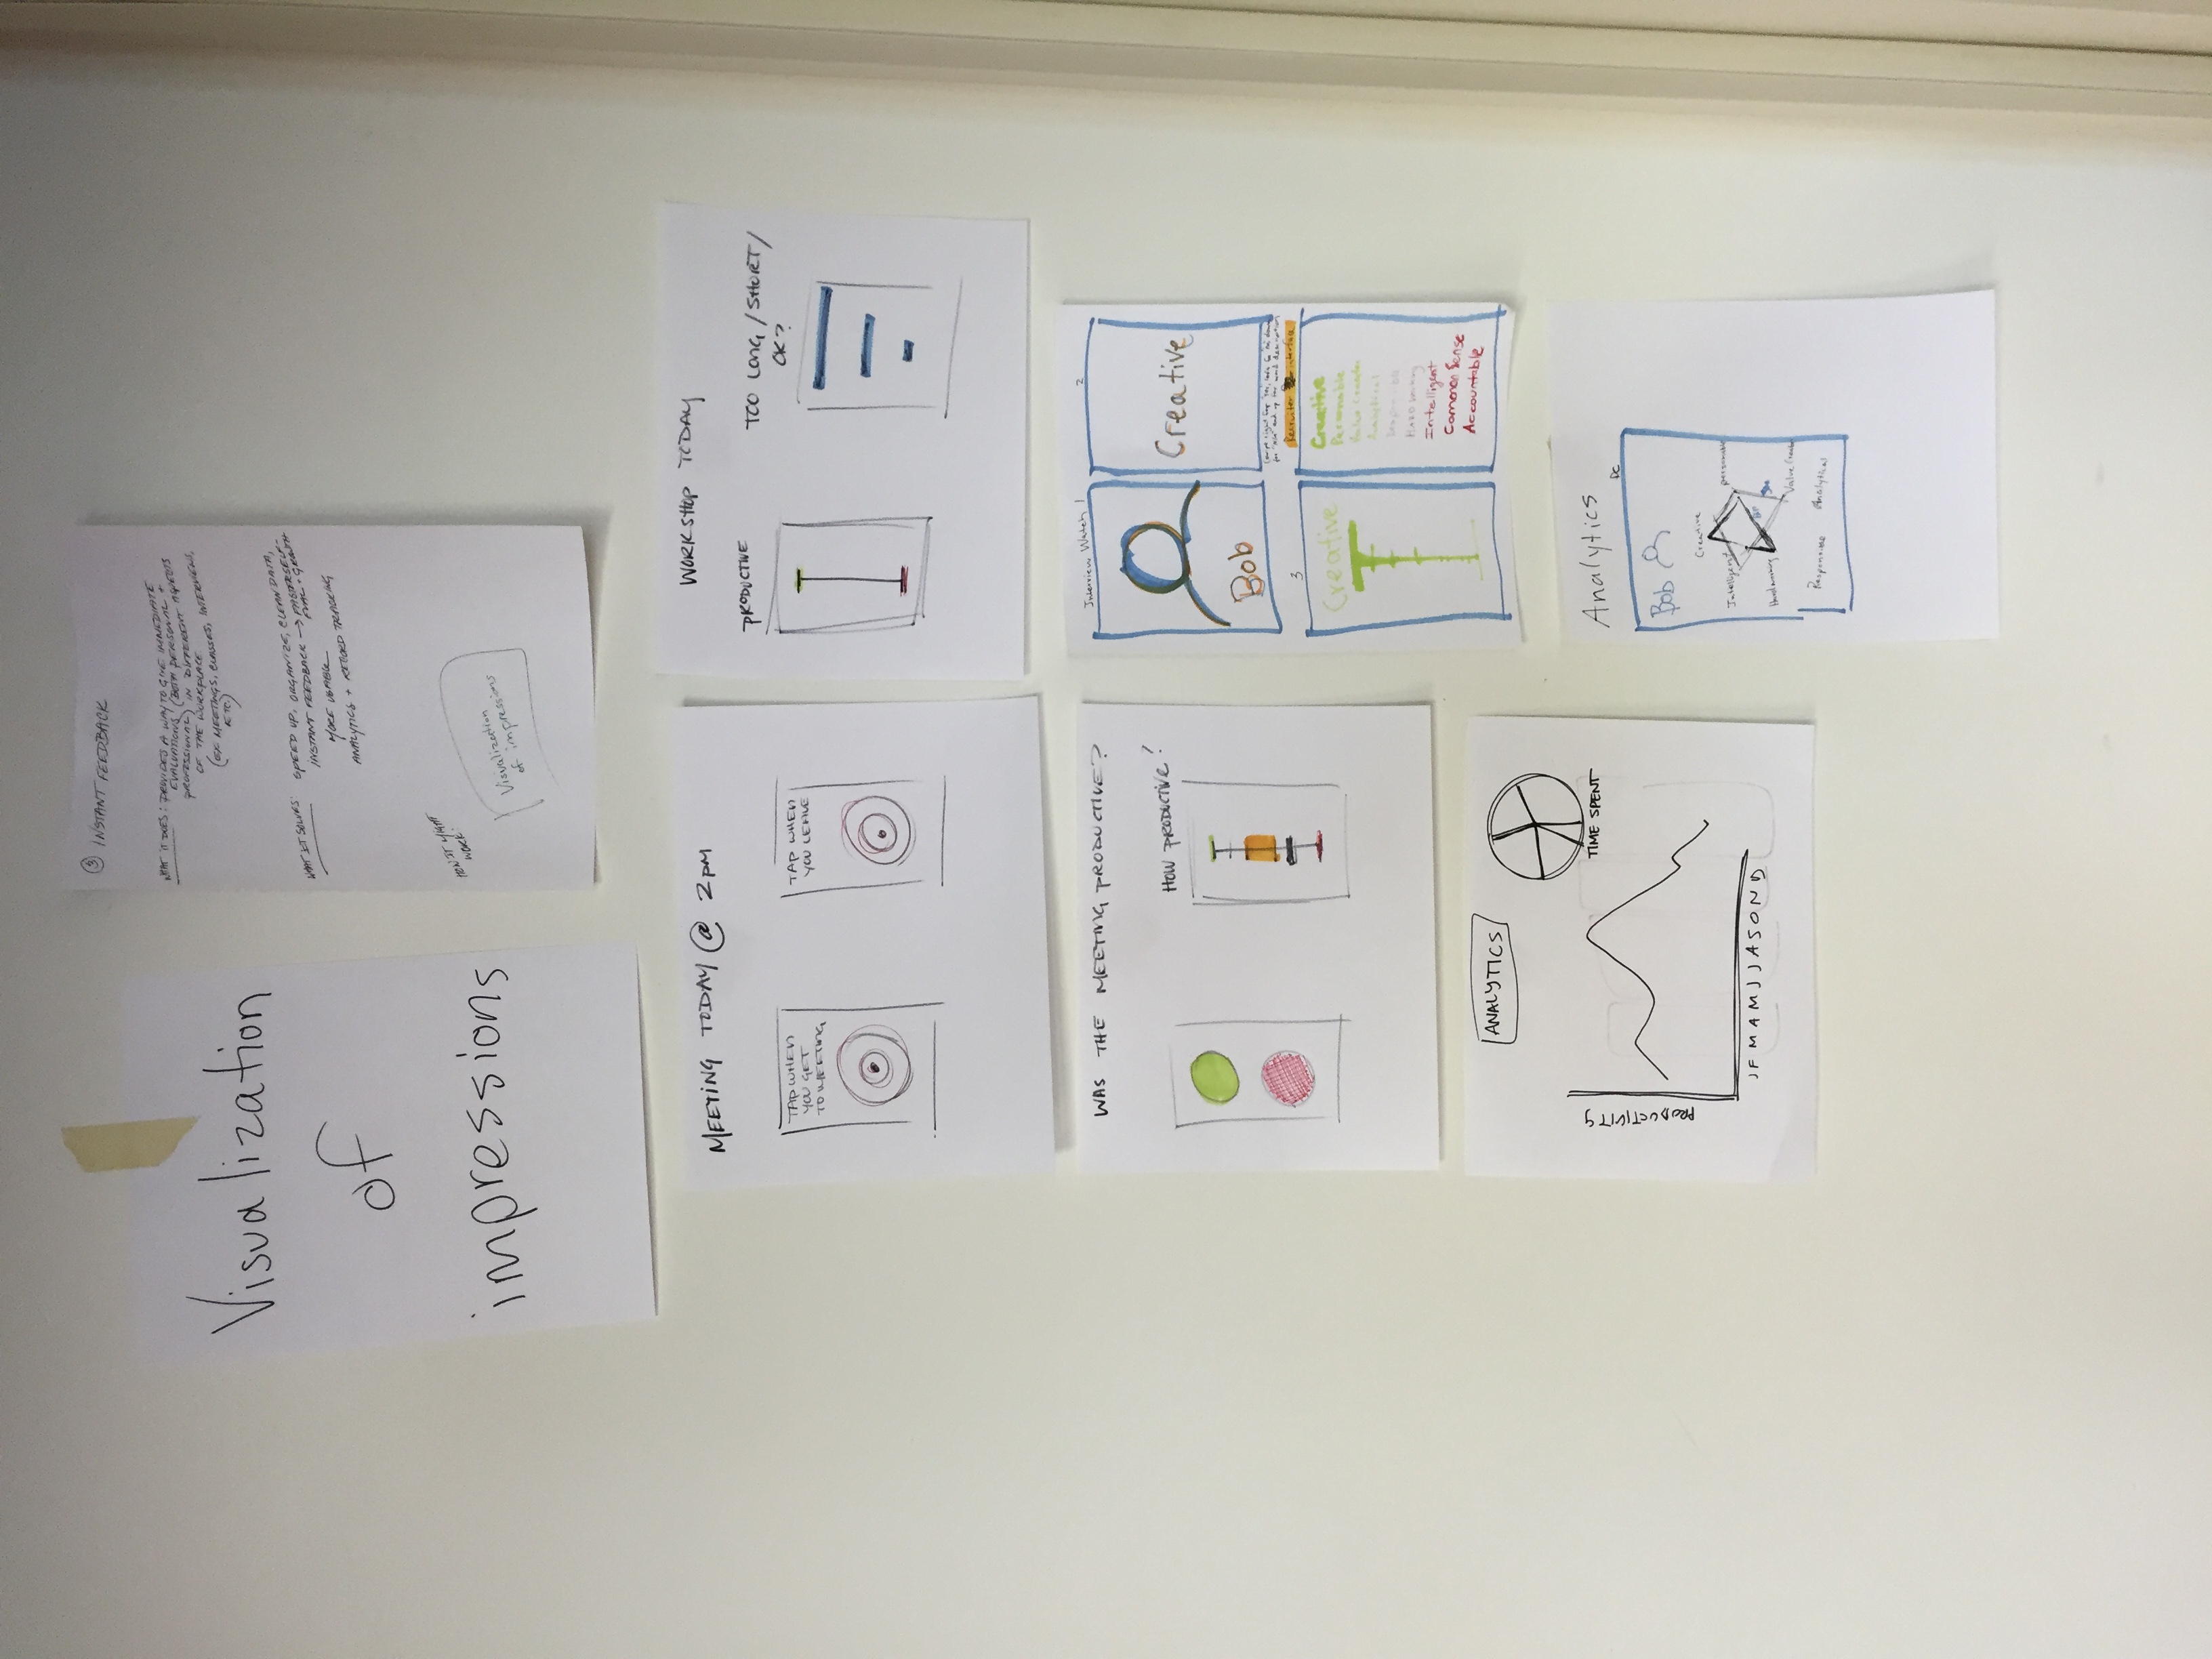 Visualization
of
impressions
3 INSTANT FEEDBACK
WHAT IT DOES: PROVIDES A WAY TO GIVE IMMEDIATE
EVALUATIONS (BOTH PERSONAL +
PROFESSIONAL) IN DIFFERENT ASPECTS
OF THE WORKPLACE
(EX MEETINGS, CLASSES, INTERVIEWS,
ETC.)
WHAT IT SOLVES: SPEED UP, ORGANIZE, CLEAN DATA,
INSTANT FEEDBACK → FASTER SELF-
EVAL + GROWTH
MORE USABLE
ANALYTICS + RECORD TRACKING
HOW IT MIGHT
WORK:
Visualization
of impressions
MEETING TODAY @ 2PM
TAP WHEN
YOU GET
TO MEETING
TAP WHEN
YOU LEAVE
WORKSHOP TODAY
PRODUCTIVE
TOO LONG / SHORT /
OK?
WAS THE MEETING PRODUCTIVE?
HOW PRODUCTIVE?
Interview Watch 1
Bob
2
Creative
Swipe right for "yes", left for "no", down
for "skip" and up for word description
Recruiter interface
3
Creative
Creative
Personable
Value Creator
Analytical
Responsible
Hard working
Intelligent
Common Sense
Accountable
ANALYTICS
TIME SPENT
PRODUCTIVITY
J F M A M J J A S O N D
Analytics
PC
Bob
Creative
Intelligent
personable
Hardworking
Value Creator
Responsible
Analytical